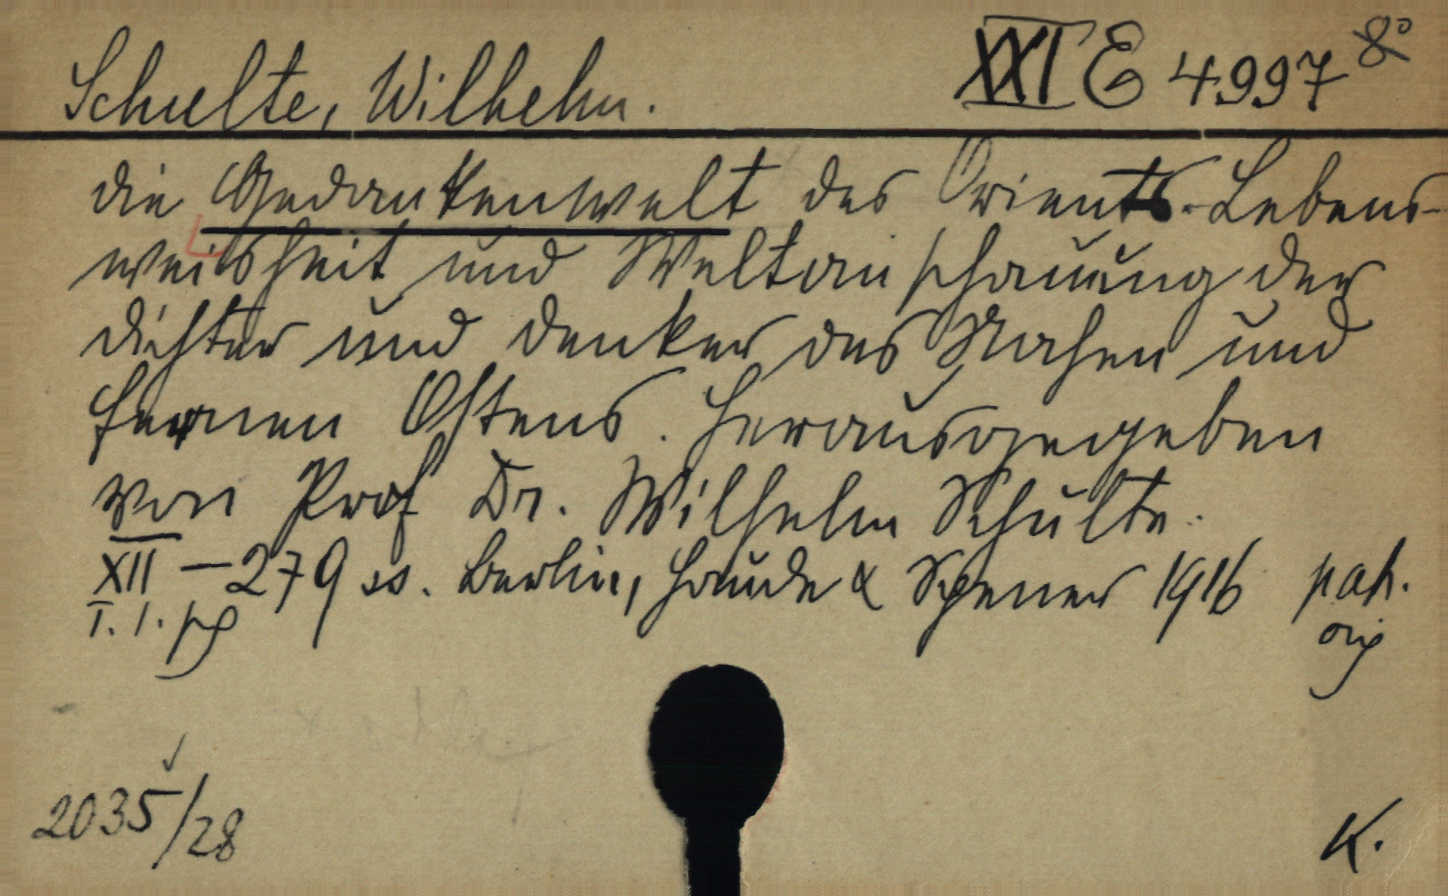 Schulte, Wilhelm.
XXI E 4997 8°
die Gedankenwelt des Orients. Lebens-
weisheit und Weltanschauung der
Dichter und Denker des Nahen und
fernen Ostens. Herausgegeben
von Prof Dr. Wilhelm Schulte.
XII – 279 ss. Berlin, Haude & Spener 1916
T. 1. pg
2035/28
K.